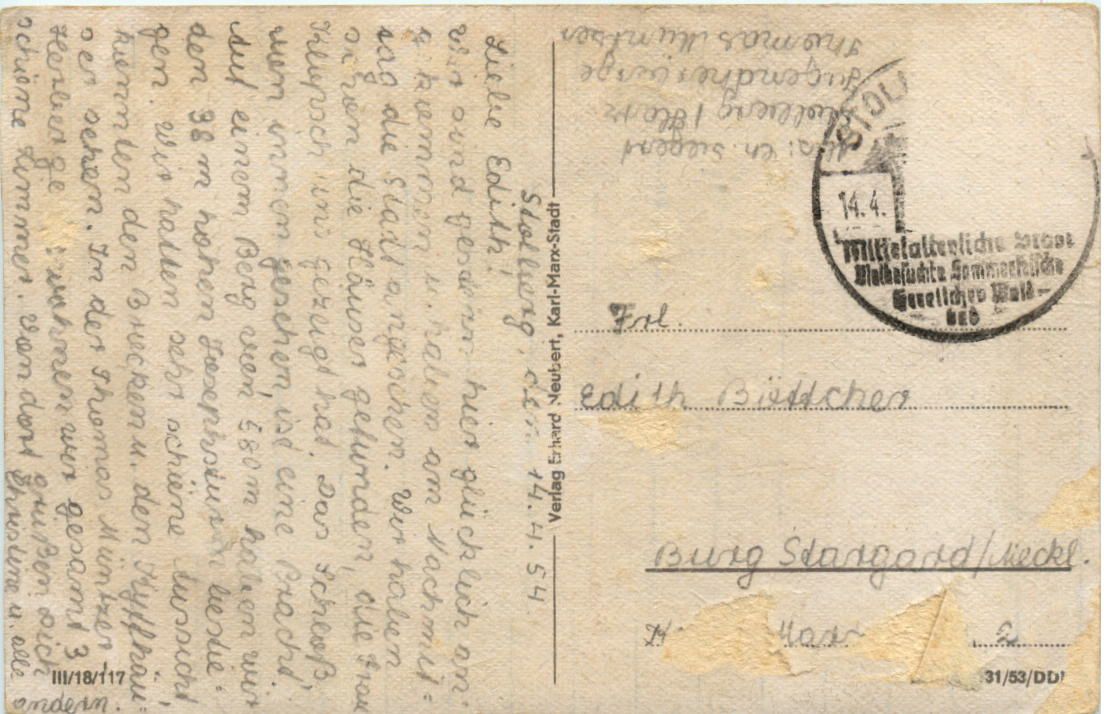 Stolberg, den 14.4.54.
Liebe Edith!
Wir sind gestern hier glücklich an=
gekommen u. haben am Nachmit=
tag die Stadt angesehen. Wir haben
schon die Häuser gefunden, die Frau
Klupsch uns gezeigt hat. Das Schloß,
von innen gesehen, ist eine Pracht.
Auf einem Berg von 580 m haben wir
den 38 m hohen Josephsturm bestie=
gen. Wir hatten sehr schöne Aussicht,
konnten den Brocken u. den Kyffhäu=
ser sehen. In der Thomas Müntzer
Herberge wohnen wir gesamt 3
schöne Zimmer. Von dort grüßen dich
Christine u. alle
andern.
III/18/117
Verlag Erhard Neubert, Karl-Marx-Stadt
Abs: Ch. Siegert
Stolberg / Harz
Jugendherberge
Thomas Müntzer
STOL
14.4.
Mittelalterliche Stadt
Vielbesuchte Sommerfrische
Herrlicher Wald
Frl.
Edith Böttcher
Burg Stargard/Meckl.
Marx 2
31/53/DDR